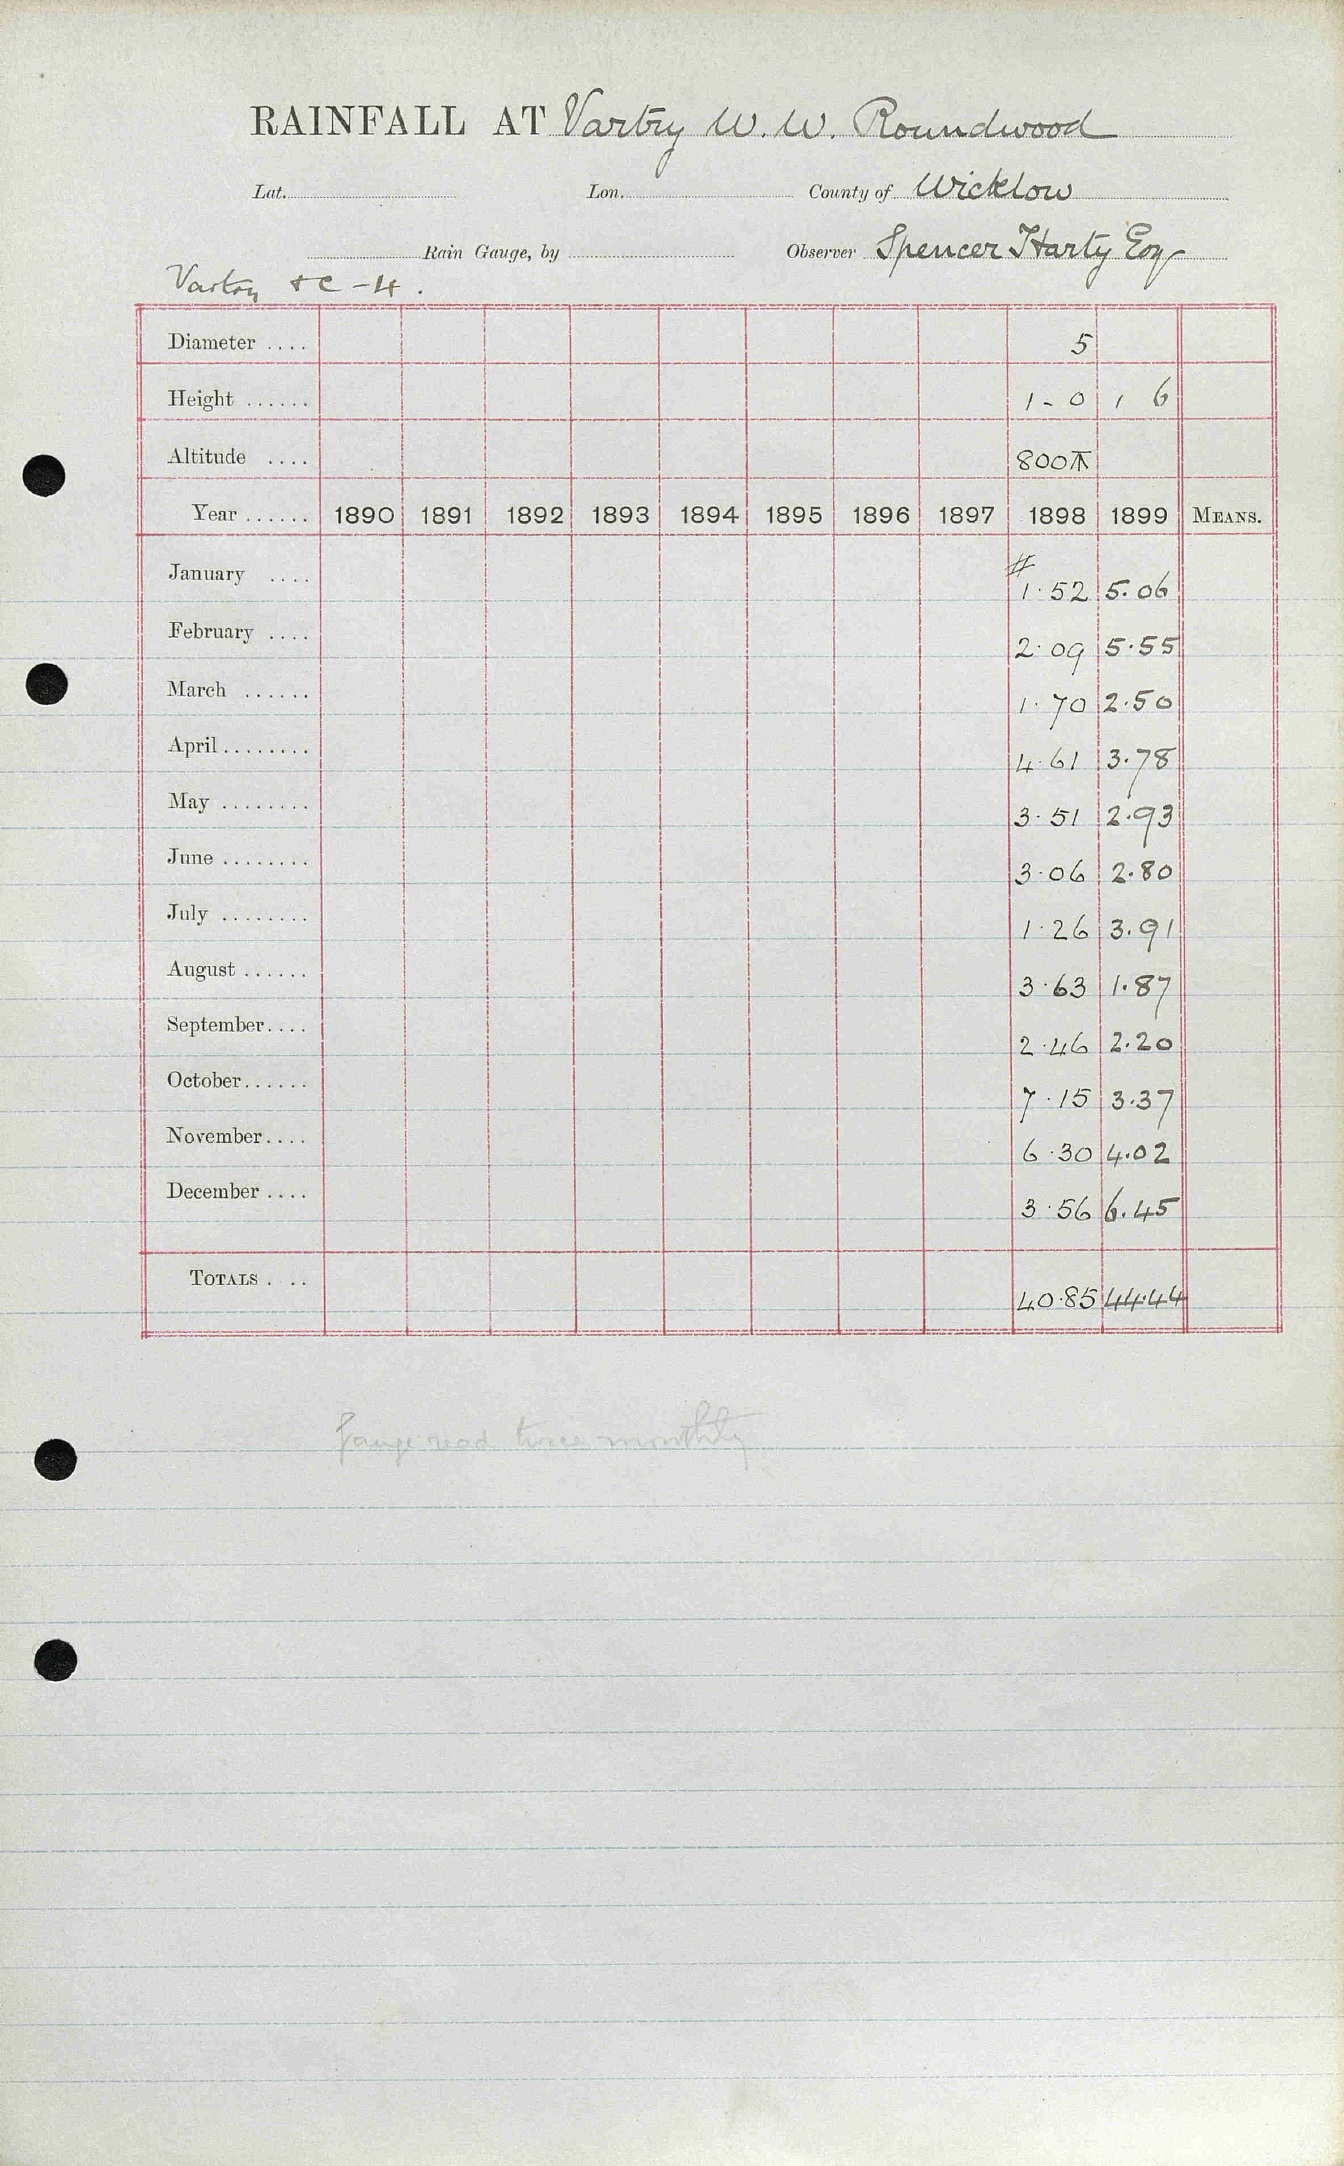 RAINFALL AT Vartry W. W. Roundwood
Lat. Lon. County of Wicklow
Rain Gauge, by Observer Spencer Harty Esq
Vartry &c - 4.
Diameter .... 5
Height ...... 1 - 0 1 6
Altitude .... 800
Year ...... 1890 1891 1892 1893 1894 1895 1896 1897 1898 1899 MEANS.
January .... # 1.52 5.06
February .... 2.09 5.55
March ...... 1.70 2.50
April ........ 4.61 3.78
May ........ 3.51 2.93
June ........ 3.06 2.80
July ........ 1.26 3.91
August ...... 3.63 1.87
September.... 2.46 2.20
October...... 7.15 3.37
November.... 6.30 4.02
December .... 3.56 6.45
TOTALS . .. 40.85 44.44
Gauge read twice monthly